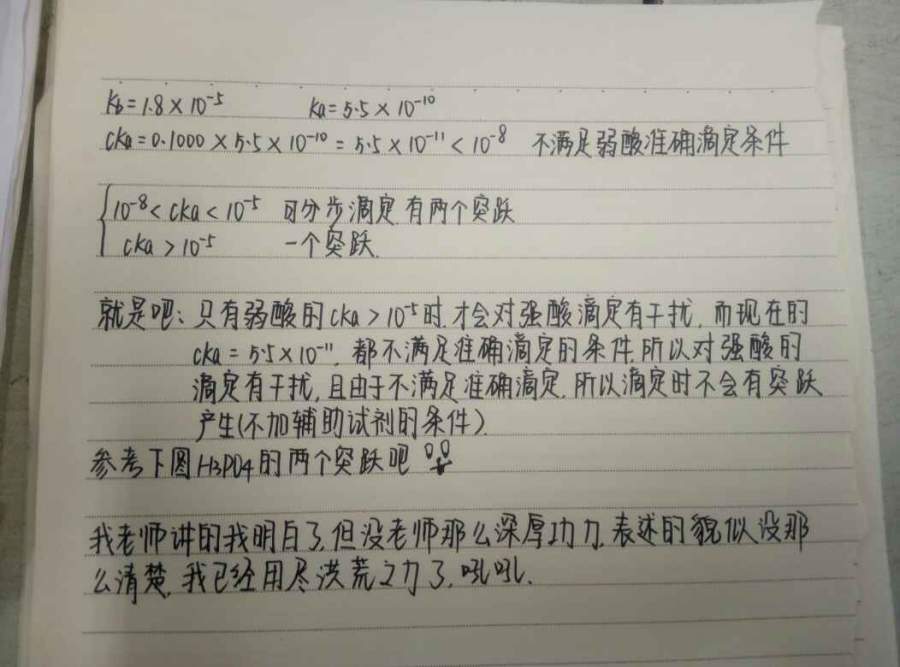 Kb=1.8×10⁻⁵ Ka=5.5×10⁻¹⁰
cKa=0.1000×5.5×10⁻¹⁰=5.5×10⁻¹¹<10⁻⁸ 不满足弱酸准确滴定条件
10⁻⁸<cKa<10⁻⁵ 可分步滴定.有两个突跃
cKa>10⁻⁵ 一个突跃.
就是吧:只有弱酸的cKa>10⁻⁵时.才会对强酸滴定有干扰,而现在的
cKa=5.5×10⁻¹¹,都不满足准确滴定的条件.所以对强酸的
滴定有干扰,且由于不满足准确滴定.所以滴定时不会有突跃
产生(不加辅助试剂的条件).
参考下图H₃PO₄的两个突跃吧
我老师讲的我明白了,但没老师那么深厚功力,表述的貌似没那
么清楚,我已经用尽洪荒之力了,吼吼.